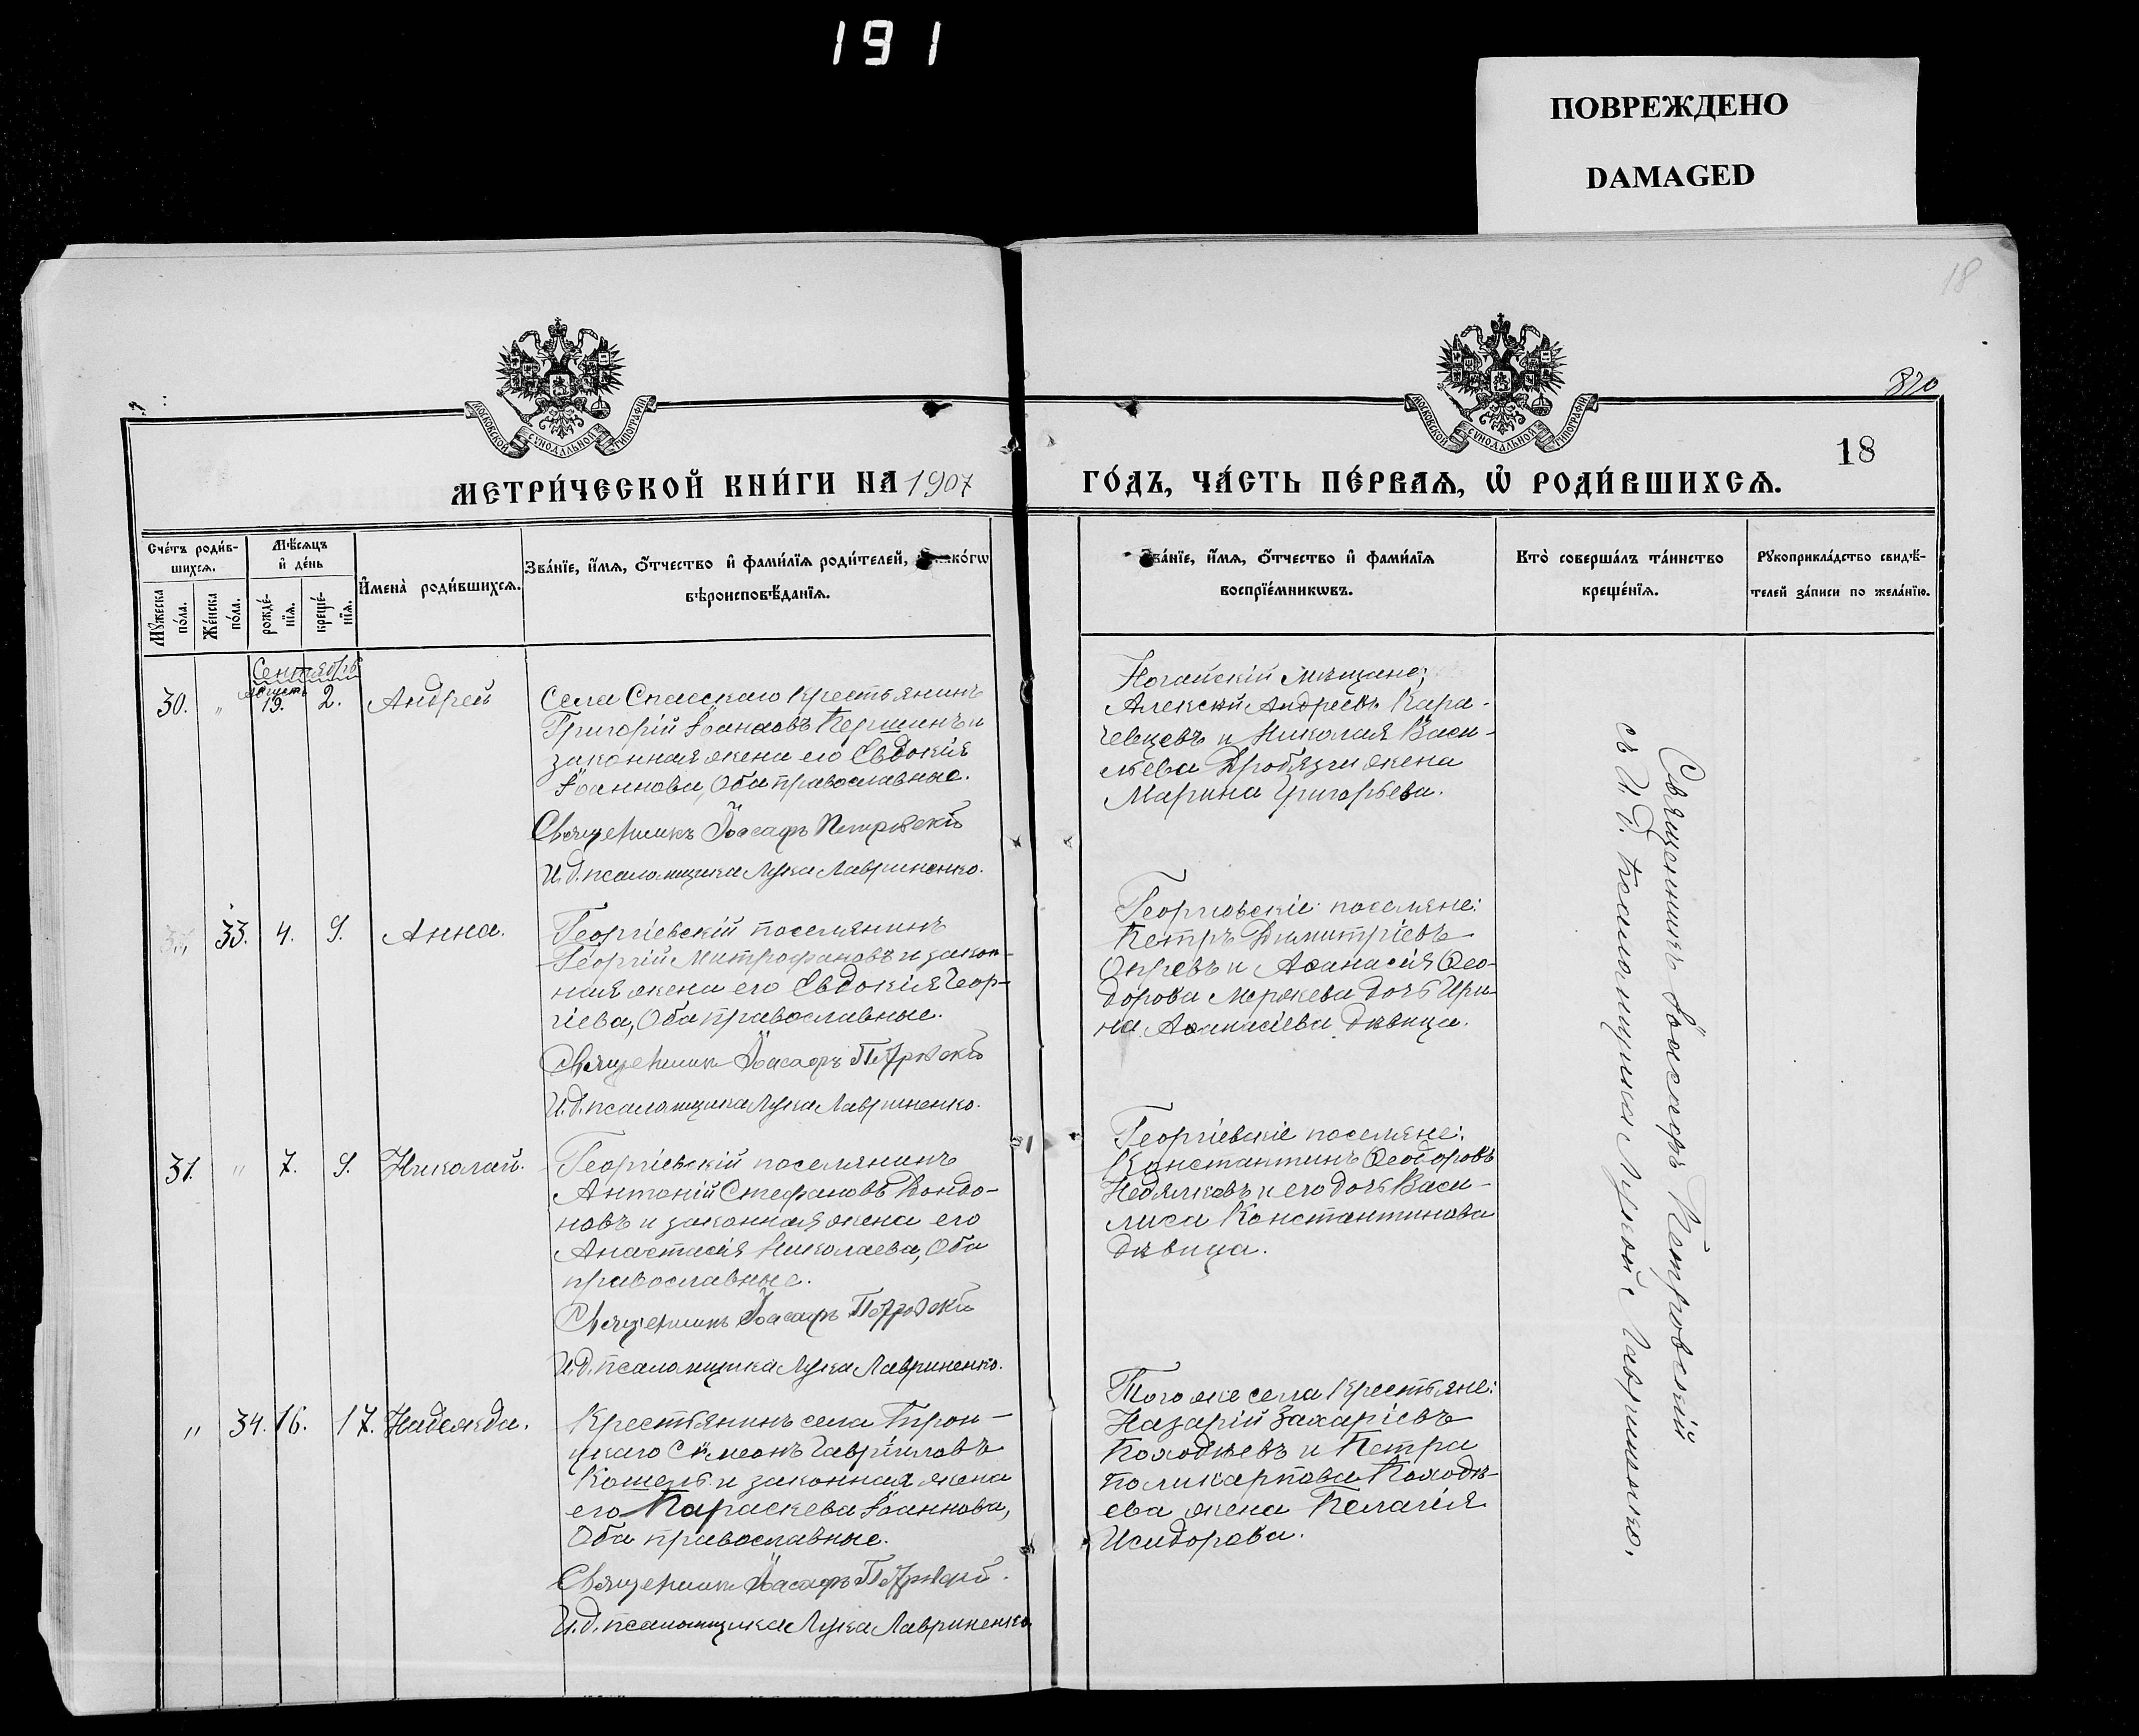 191
ПОВРЕЖДЕНО
DAMAGED
18
820
МОСКОВСКОЙ СѴНОДАЛЬНОЙ ТИПОГРАФІИ
МОСКОВСКОЙ СѴНОДАЛЬНОЙ ТИПОГРАФІИ
18
МЕТРИ́ЧЕСКОЙ КНИ́ГИ НА 1907
ГО́ДЪ, ЧА́СТЬ ПЕ́РВАѦ, Ѡ҆ РОДИ́ВШИХСѦ.
Сче́тъ роди́в-
шихсѧ.
Мѣ́сѧцъ
и҆ де́нь
Мꙋ́жеска по́ла.
Же́нска по́ла.
рожде́-
нїѧ.
креще́-
нїѧ.
И҆мена̀ роди́вшихсѧ.
Зва́нїе, и҆́мѧ, ѻ҆́тчество и҆ фами́лїѧ роди́телей, ко́гѡ
вѣроисповѣ́данїѧ.
Зва́нїе, и҆́мѧ, ѻ҆́тчество и҆ фами́лїѧ
воспрїе́мникѡвъ.
Кто̀ соверша́лъ та́инство
креще́нїѧ.
Рꙋкоприкла́дство свидѣ́-
телей за́писи по жела́нїю.
Сентябрь
Августъ
30. " 19. 2. Андрей
Села Спасскаго крестьянинъ
Григорій Іоанновъ Першинъ и
законная жена его Евдокія
Іоаннова, Оба православные.
Священникъ Іоасафъ Петровскій
И.д. псаломщика Лука Лавриненко.
Ногайскій мѣщане;
Алексѣй Андреевъ Кара-
чевцевъ и Николая Васи-
льева Дробязги жена
Марина Григорьева.
33. 4. 9. Анна.
Георгіевскій поселянинъ
Георгій Митрофановъ и закон-
ная жена его Евдокія Геор-
гіева, Оба православные.
Священникъ Іоасафъ Петровскій
И.д. псаломщика Лука Лавриненко.
Георгіевскіе поселяне:
Петръ Димитріевъ
и Аѳанасія Ѳео-
дорова Мержева дочь Ири-
на Аѳанасіева дѣвица.
31. " 7. 9. Николай.
Георгіевскій поселянинъ
Антоній Стефановъ Кондо-
новъ и законная жена его
Анастасія Николаева, Оба
православные.
Священникъ Іоасафъ Петровскій
И.д. псаломщика Лука Лавриненко.
Георгіевскіе поселяне:
Константинъ Ѳеодоровъ
Недялковъ и его дочь Васи-
лиса Константинова
дѣвица.
" 34. 16. 17. Надежда.
Крестьянинъ села Трои-
цкаго Симеонъ Гавріиловъ
Кошель и законная жена
его Параскева Іоаннова,
Оба православные.
Священникъ Іоасафъ Петровскій.
И.д. псаломщика Лука Лавриненко.
Того же села крестьяне:
Назарій Захаріевъ
Колодѣевъ и Петра
Поликарпова Колодѣ-
ева жена Пелагія
Исидорова.
Священникъ Іоасафъ Петровскій
съ И.д. псаломщика Лукой Лавриненко.